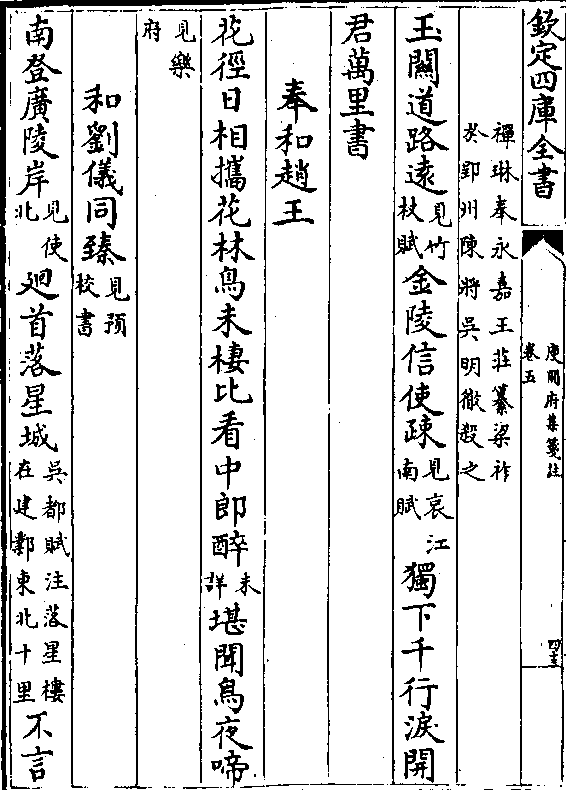 欽定四庫全書
庾開府集箋註
卷五
四十五
禪琳奉永嘉王莊纂梁祚
於郢州陳將吳明徹殺之
玉關道路遠見竹杖賦金陵信使疎見哀江南賦獨下千行淚開
君萬里書
奉和趙王
花徑日相攜花林鳥未棲比看中郎醉未詳堪聞鳥夜啼
見樂府
和劉儀同臻見預校書
南登廣陵岸見使北廻首落星城吳都賦注落星樓在建鄴東北十里不言